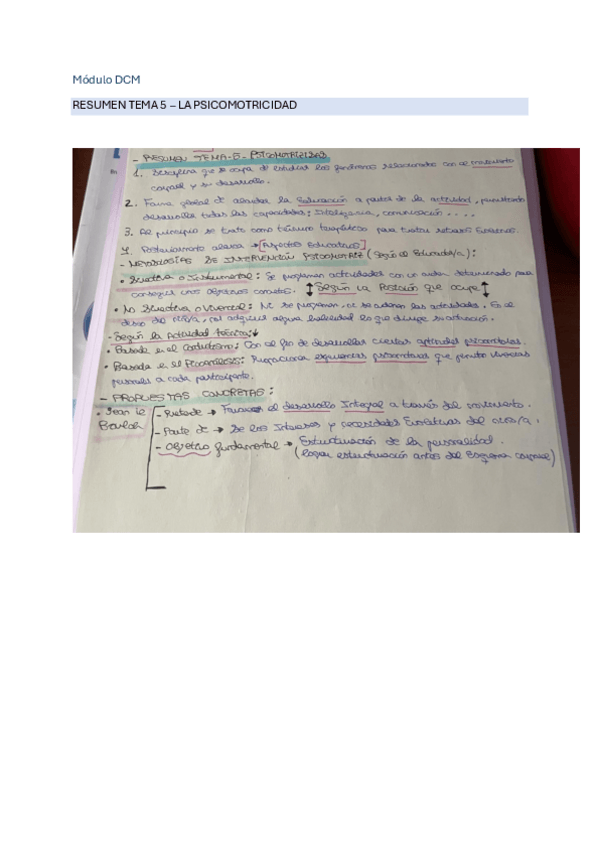 Módulo DCM
RESUMEN TEMA 5 – LA PSICOMOTRICIDAD
- RESUMEN TEMA-5- PSICOMOTRICIDAD
1. Disciplina que se ocupa de estudiar los fenómenos relacionados con el movimiento
corporal y su desarrollo.
2. Forma global de abordar la Educación a partir de la actividad, permitiendo
desarrollar todas las capacidades: Inteligencia, comunicación ....
3. Al principio se trató como técnica terapéutica para tratar retrasos Evolutivos.
4. Posteriormente abarca → [Aspectos Educativos]
- METODOLOGÍAS DE INTERVENCIÓN PSICOMOTRIZ (Según el Educador/a):
• Directiva o Instrumental: Se programan actividades con un orden determinado para
conseguir unos objetivos concretos. ↕ Según la Posición que ocupe ↕
• No Directiva o Vivencial: No se programan, ni se ordenan las actividades. Es el
deseo del niño/a, por adquirir alguna habilidad lo que dirige su actuación.
- Según la Actividad Técnica: ↓
• Basada en el Conductismo: Con el fin de desarrollar ciertas aptitudes psicomotoras.
• Basada en el Psicoanálisis: Proporciona experiencias psicomotoras que permite vivencias
personales a cada participante.
- PROPUESTAS CONCRETAS:
• Jean le Boulch
- Pretende → Favorecer el desarrollo Integral a través del movimiento.
- Parte de → De los Intereses y necesidades Evolutivas del niño/a.
- Objetivo fundamental → Estructuración de la personalidad.
(lograr estructuración antes del Esquema corporal)